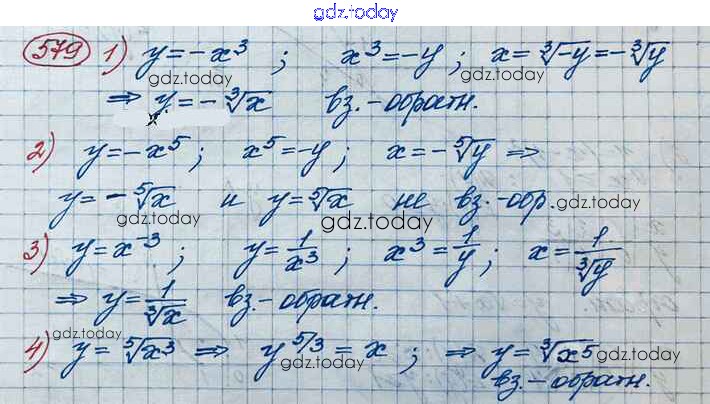 gdz.today
579 1) y = -x³ ; x³ = -y ; x = ∛-y = -∛y
gdz.today gdz.today
⇒ y = -∛x вз.-обратн.
gdz.today
2) y = -x⁵ ; x⁵ = -y ; x = -⁵√y ⇒
y = -⁵√x и y = ⁵√x не вз.-обр.
gdz.today gdz.today gdz.today
3) y = x⁻³ ; y = 1/x³ ; x³ = 1/y ; x = 1/∛y
gdz.today
⇒ y = 1/∛x вз.-обратн.
gdz.today gdz.today
gdz.today
4) y = ⁵√x³ ⇒ y^5/3 = x ; ⇒ y = ∛x⁵
gdz.today gdz.today
вз.-обратн.